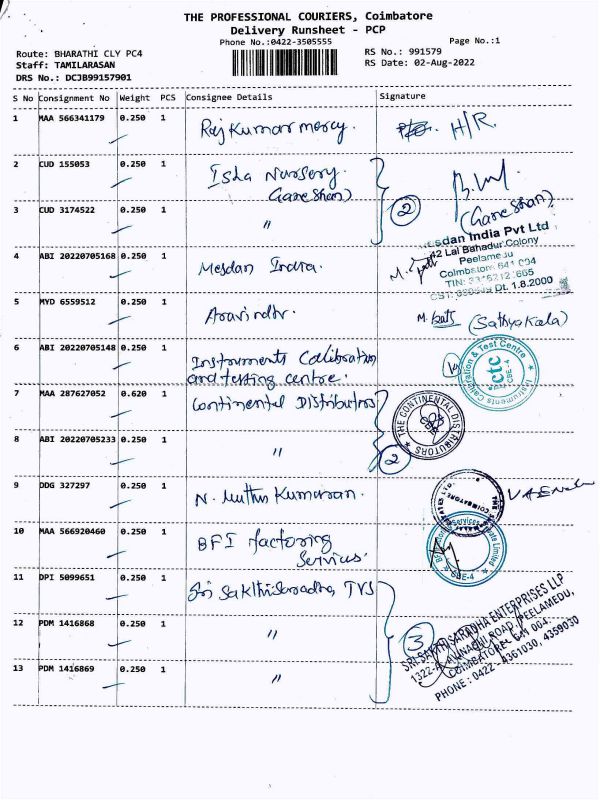 THE PROFESSIONAL COURIERS, Coimbatore
Delivery Runsheet - PCP
Phone No.:0422-3505555
Page No.:1
Route: BHARATHI CLY PC4
RS No.: 991579
Staff: TAMILARASAN
RS Date: 02-Aug-2022
DRS No.: DCJB99157901
S No Consignment No Weight PCS Consignee Details Signature
1 MAA 566341179 0.250 1 Rajkumar mercy. H/R.
2 CUD 155053 0.250 1 Isha Nursery.
(Ganeshan)
2
(Ganeshan)
3 CUD 3174522 0.250 1 "
4 ABI 20220705168 0.250 1 Mesdan India.
esdan India Pvt Ltd
42 Lal Bahadur Colony
Peelamedu
Coimbatore 641 004
Dt. 1.8.2000
5 MYD 6559512 0.250 1 (Sathyakala)
6 ABI 20220705148 0.250 1 Instruments Calibration
and testing centre.
Instruments Calibration & Test Centre
ctc
CBE-4
7 MAA 287627052 0.620 1 Continental Distributors
THE CONTINENTAL DISTRIBUTORS
8 ABI 20220705233 0.250 1 "
2
9 DDG 327297 0.250 1 N. Muthu Kumaran.
COIMBATORE
10 MAA 566920460 0.250 1 BFI factoring
Services.
CBE-4
11 DPI 5099651 0.250 1 TVS
12 PDM 1416868 0.250 1 "
3
SRI SAKTHI SARADHA ENTERPRISES LLP
PEELAMEDU,
COIMBATORE 641 004.
PHONE : 0422 - 4361030, 4359030
13 PDM 1416869 0.250 1 "